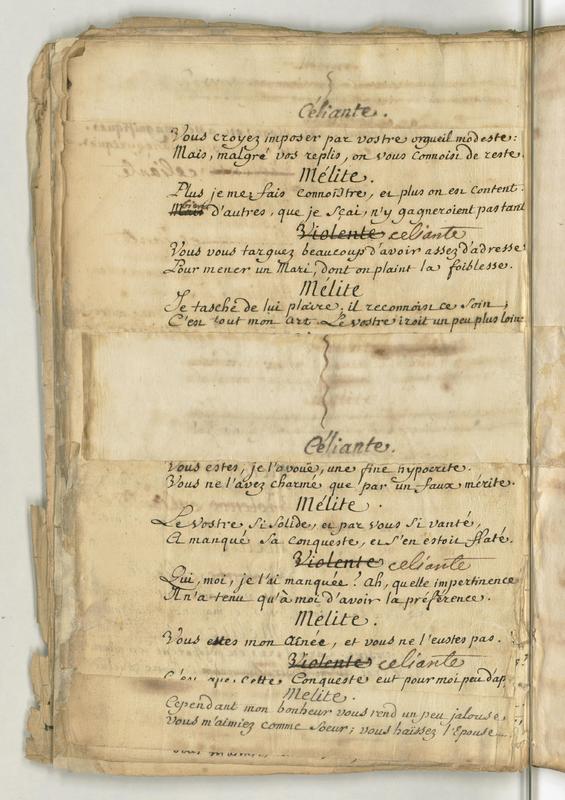 Céliante.
Vous croyez imposer par vostre orgueil modeste:
Mais, malgré vos replis, on vous connoist de reste.
Mélite.
Plus je me fais connoistre, et plus on est content.
d'autres, que je sçai, n'y gagneroient pas tant
Violente celiante
Vous vous targuez beaucoup d'avoir assez d'adresse
Pour mener un Mari, dont on plaint la foiblesse.
Mélite
Je tasche de lui plaire, il reconnoist ce soin,
C'est tout mon art. Le vostre iroit un peu plus loin
Céliante.
Vous estes, je l'avoue, une fine hypocrite.
Vous ne l'avez charmé que par un faux mérite.
Mélite.
Le vostre si solide, et par vous si vanté,
A manqué sa conqueste, et s'en estoit flaté.
Violente celiante
Qui, moi, je l'ai manquée? Ah, quelle impertinence
Il n'a tenu qu'à moi d'avoir la préférence.
Mélite.
Vous estes mon Aînée, et vous ne l'eustes pas.
Violente celiante
C'est que cette Conqueste eut pour moi peu d'ap
Mélite.
Cependant mon bonheur vous rend un peu jalouse
Vous m'aimiez comme Soeur; vous haïssez l'Epouse